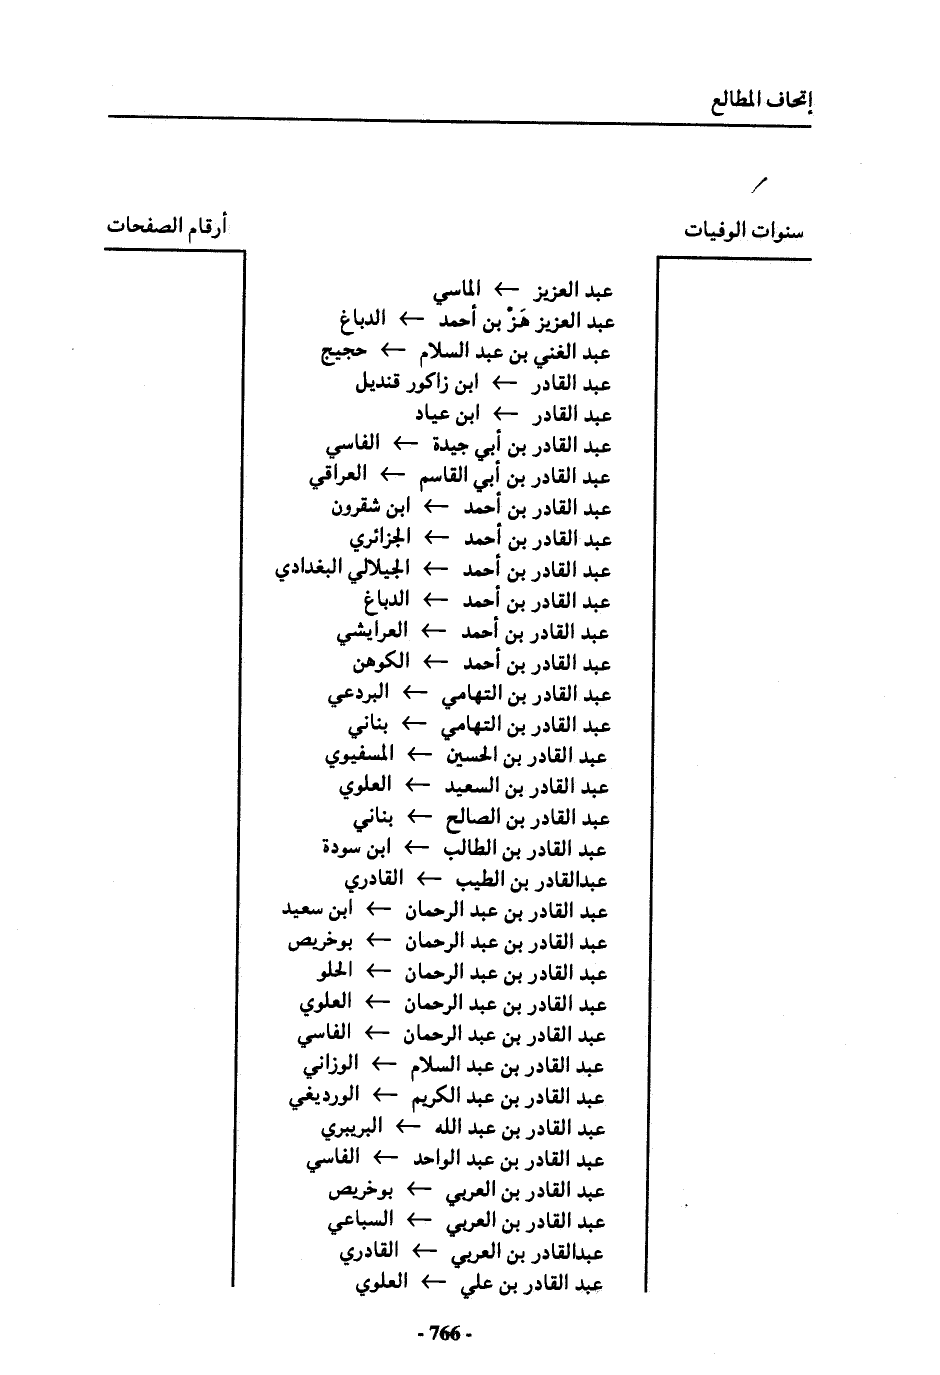 إتحاف المطالع
سنوات الوفيات
أرقام الصفحات
عبد العزيز ← الماسي
عبد العزيز هَزْ بن أحمد ← الدباغ
عبد الغني بن عبد السلام ← حجيج
عبد القادر ← ابن زاكور قنديل
عبد القادر ← ابن عياد
عبد القادر بن أبي جيدة ← الفاسي
عبد القادر بن أبي القاسم ← العراقي
عبد القادر بن أحمد ← ابن شقرون
عبد القادر بن أحمد ← الجزائري
عبد القادر بن أحمد ← الجيلالي البغدادي
عبد القادر بن أحمد ← الدباغ
عبد القادر بن أحمد ← العرايشي
عبد القادر بن أحمد ← الكوهن
عبد القادر بن التهامي ← البردعي
عبد القادر بن التهامي ← بناني
عبد القادر بن الحسين ← المسفيوي
عبد القادر بن السعيد ← العلوي
عبد القادر بن الصالح ← بناني
عبد القادر بن الطالب ← ابن سودة
عبدالقادر بن الطيب ← القادري
عبد القادر بن عبد الرحمان ← ابن سعيد
عبد القادر بن عبد الرحمان ← بوخريص
عبد القادر بن عبد الرحمان ← الحلو
عبد القادر بن عبد الرحمان ← العلوي
عبد القادر بن عبد الرحمان ← الفاسي
عبد القادر بن عبد السلام ← الوزاني
عبد القادر بن عبد الكريم ← الورديغي
عبد القادر بن عبد الله ← البريبري
عبد القادر بن عبد الواحد ← الفاسي
عبد القادر بن العربي ← بوخريص
عبد القادر بن العربي ← السباعي
عبدالقادر بن العربي ← القادري
عبد القادر بن علي ← العلوي
- 766 -